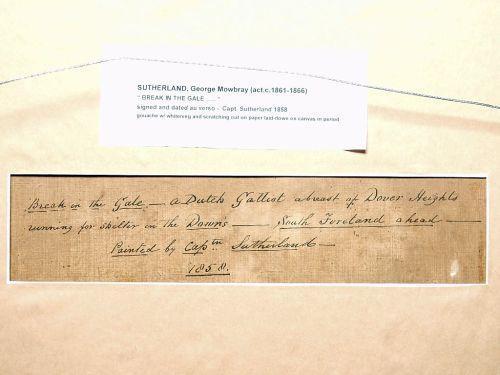 SUTHERLAND, George Mowbray (act.c.1861-1866)
" BREAK IN THE GALE ..... "
signed and dated au verso - Capt. Sutherland 1858
gouache w/ whitening and scratching out on paper laid-down on canvas in period
Break in the Gale — a Dutch Galliot abreast of Dover Heights
running for shelter in the Down's — South Foreland ahead —
Painted by Capᵗⁿ Sutherland —
1858.